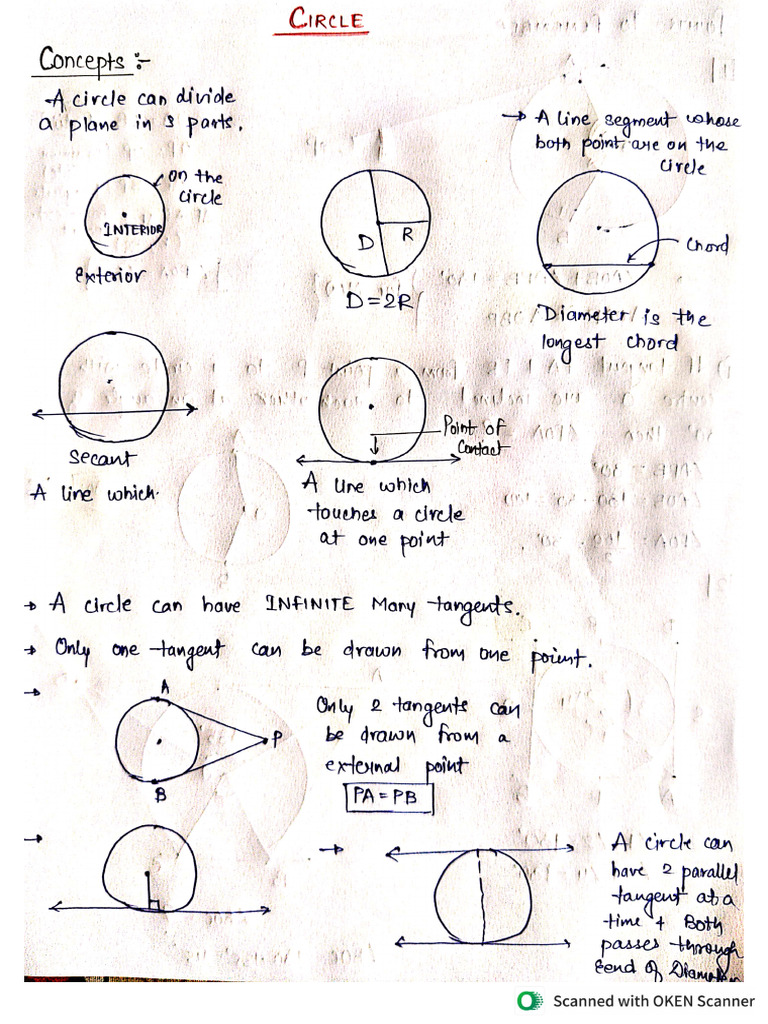 CIRCLE
Concepts :-
A circle can divide
a plane in 3 parts.
on the
circle
INTERIOR
exterior
D
R
D=2R
→ A line segment whose
both point are on the
circle
chord
Diameter is the
longest chord
Secant
A line which
Point of
contact
A line which
touches a circle
at one point
→ A circle can have INFINITE Many tangents.
→ Only one tangent can be drawn from one point.
→
A
P
B
Only 2 tangents can
be drawn from a
external point
PA = PB
→
→
A circle can
have 2 parallel
tangent at a
time + Both
passes through
end of
Scanned with OKEN Scanner